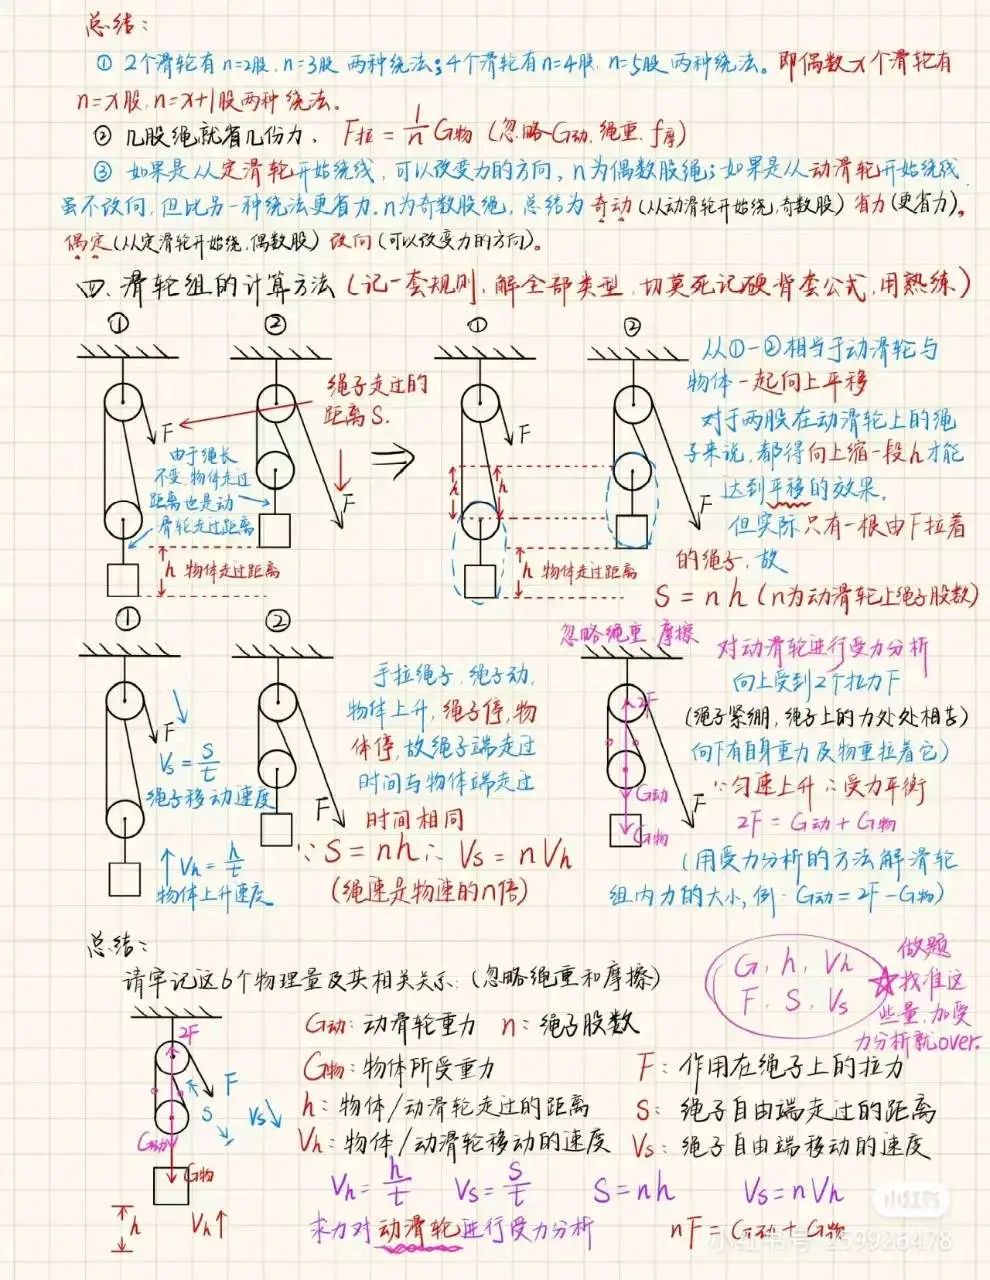 总结：
① 2个滑轮有n=2股，n=3股 两种绕法；4个滑轮有n=4股，n=5股 两种绕法。即偶数x个滑轮有
n=x股，n=x+1股两种绕法。
② 几股绳就省几份力，F拉=1/n G物 (忽略G动，绳重，f摩)
③ 如果是从定滑轮开始绕线，可以改变力的方向，n为偶数股绳；如果是从动滑轮开始绕线
虽不改向，但比另一种绕法更省力，n为奇数股绳，总结为 奇动(从动滑轮开始绕，奇数股) 省力(更省力)。
偶定(从定滑轮开始绕，偶数股) 改向(可以改变力的方向)。
四、滑轮组的计算方法(记一套规则，解全部类型，切莫死记硬背套公式，用熟练)
① ② ① ②
绳子走过的
距离S.
F
F
由于绳长
不变，物体走过
距离也是动
滑轮走过距离
h 物体走过距离
h h
F
F
h 物体走过距离
从①-②相当于动滑轮与
物体一起向上平移
对于两股在动滑轮上的绳
子来说，都得向上缩一段h才能
达到平移的效果。
但实际只有一根由F拉着
的绳子，故
S=nh(n为动滑轮上绳子股数)
① ②
F
Vs=S/t
绳子移动速度
↑Vh=h/t
物体上升速度
F
手拉绳子，绳子动，
物体上升，绳子停，物
体停，故绳子端走过
时间与物体端走过
时间相同
∵S=nh∴Vs=nVh
(绳速是物速的n倍)
忽略绳重 摩擦
2F
G动
G物
F
对动滑轮进行受力分析
向上受到2个拉力F
(绳子紧绷，绳子上的力处处相等)
向下有自身重力及物重拉着它)
∵匀速上升∴受力平衡
2F=G动+G物
(用受力分析的方法解滑轮
组内力的大小，例：G动=2F-G物)
总结：
请牢记这6个物理量及其相关关系：(忽略绳重和摩擦)
G，h，Vh
F，S，Vs
做题
☆找准这
些量，加受
力分析就over.
2F
F
S
Vs
G动
G物
h
Vh↑
G动：动滑轮重力 n：绳子股数
G物：物体所受重力 F：作用在绳子上的拉力
h：物体/动滑轮走过的距离 S：绳子自由端走过的距离
Vh：物体/动滑轮移动的速度 Vs：绳子自由端移动的速度
Vh=h/t Vs=S/t S=nh Vs=nVh
求力对动滑轮进行受力分析 nF=G动+G物
小红书
小红书号 259926478